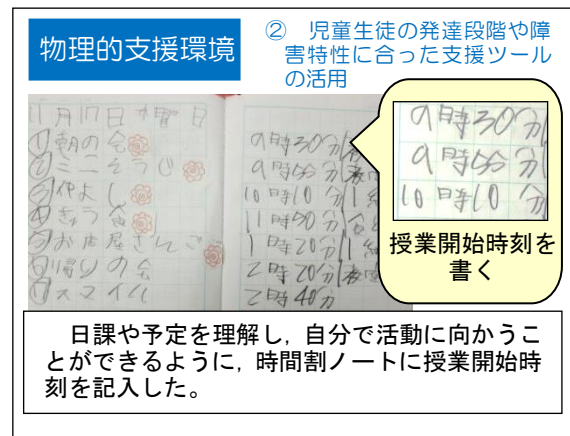 物理的支援環境
② 児童生徒の発達段階や障
害特性に合った支援ツール
の活用
11月17日 水曜日
①朝の会
②ミニそうじ
③仲よし
④きゅう食
⑤お店屋さんごっこ
⑥帰りの会
⑦スマイル
9時30分
9時55分
10時10分
11時50分
1時20分
2時20分
2時40分
9時30分
9時55分
10時10分
授業開始時刻を
書く
日課や予定を理解し，自分で活動に向かうこ
とができるように，時間割ノートに授業開始時
刻を記入した。